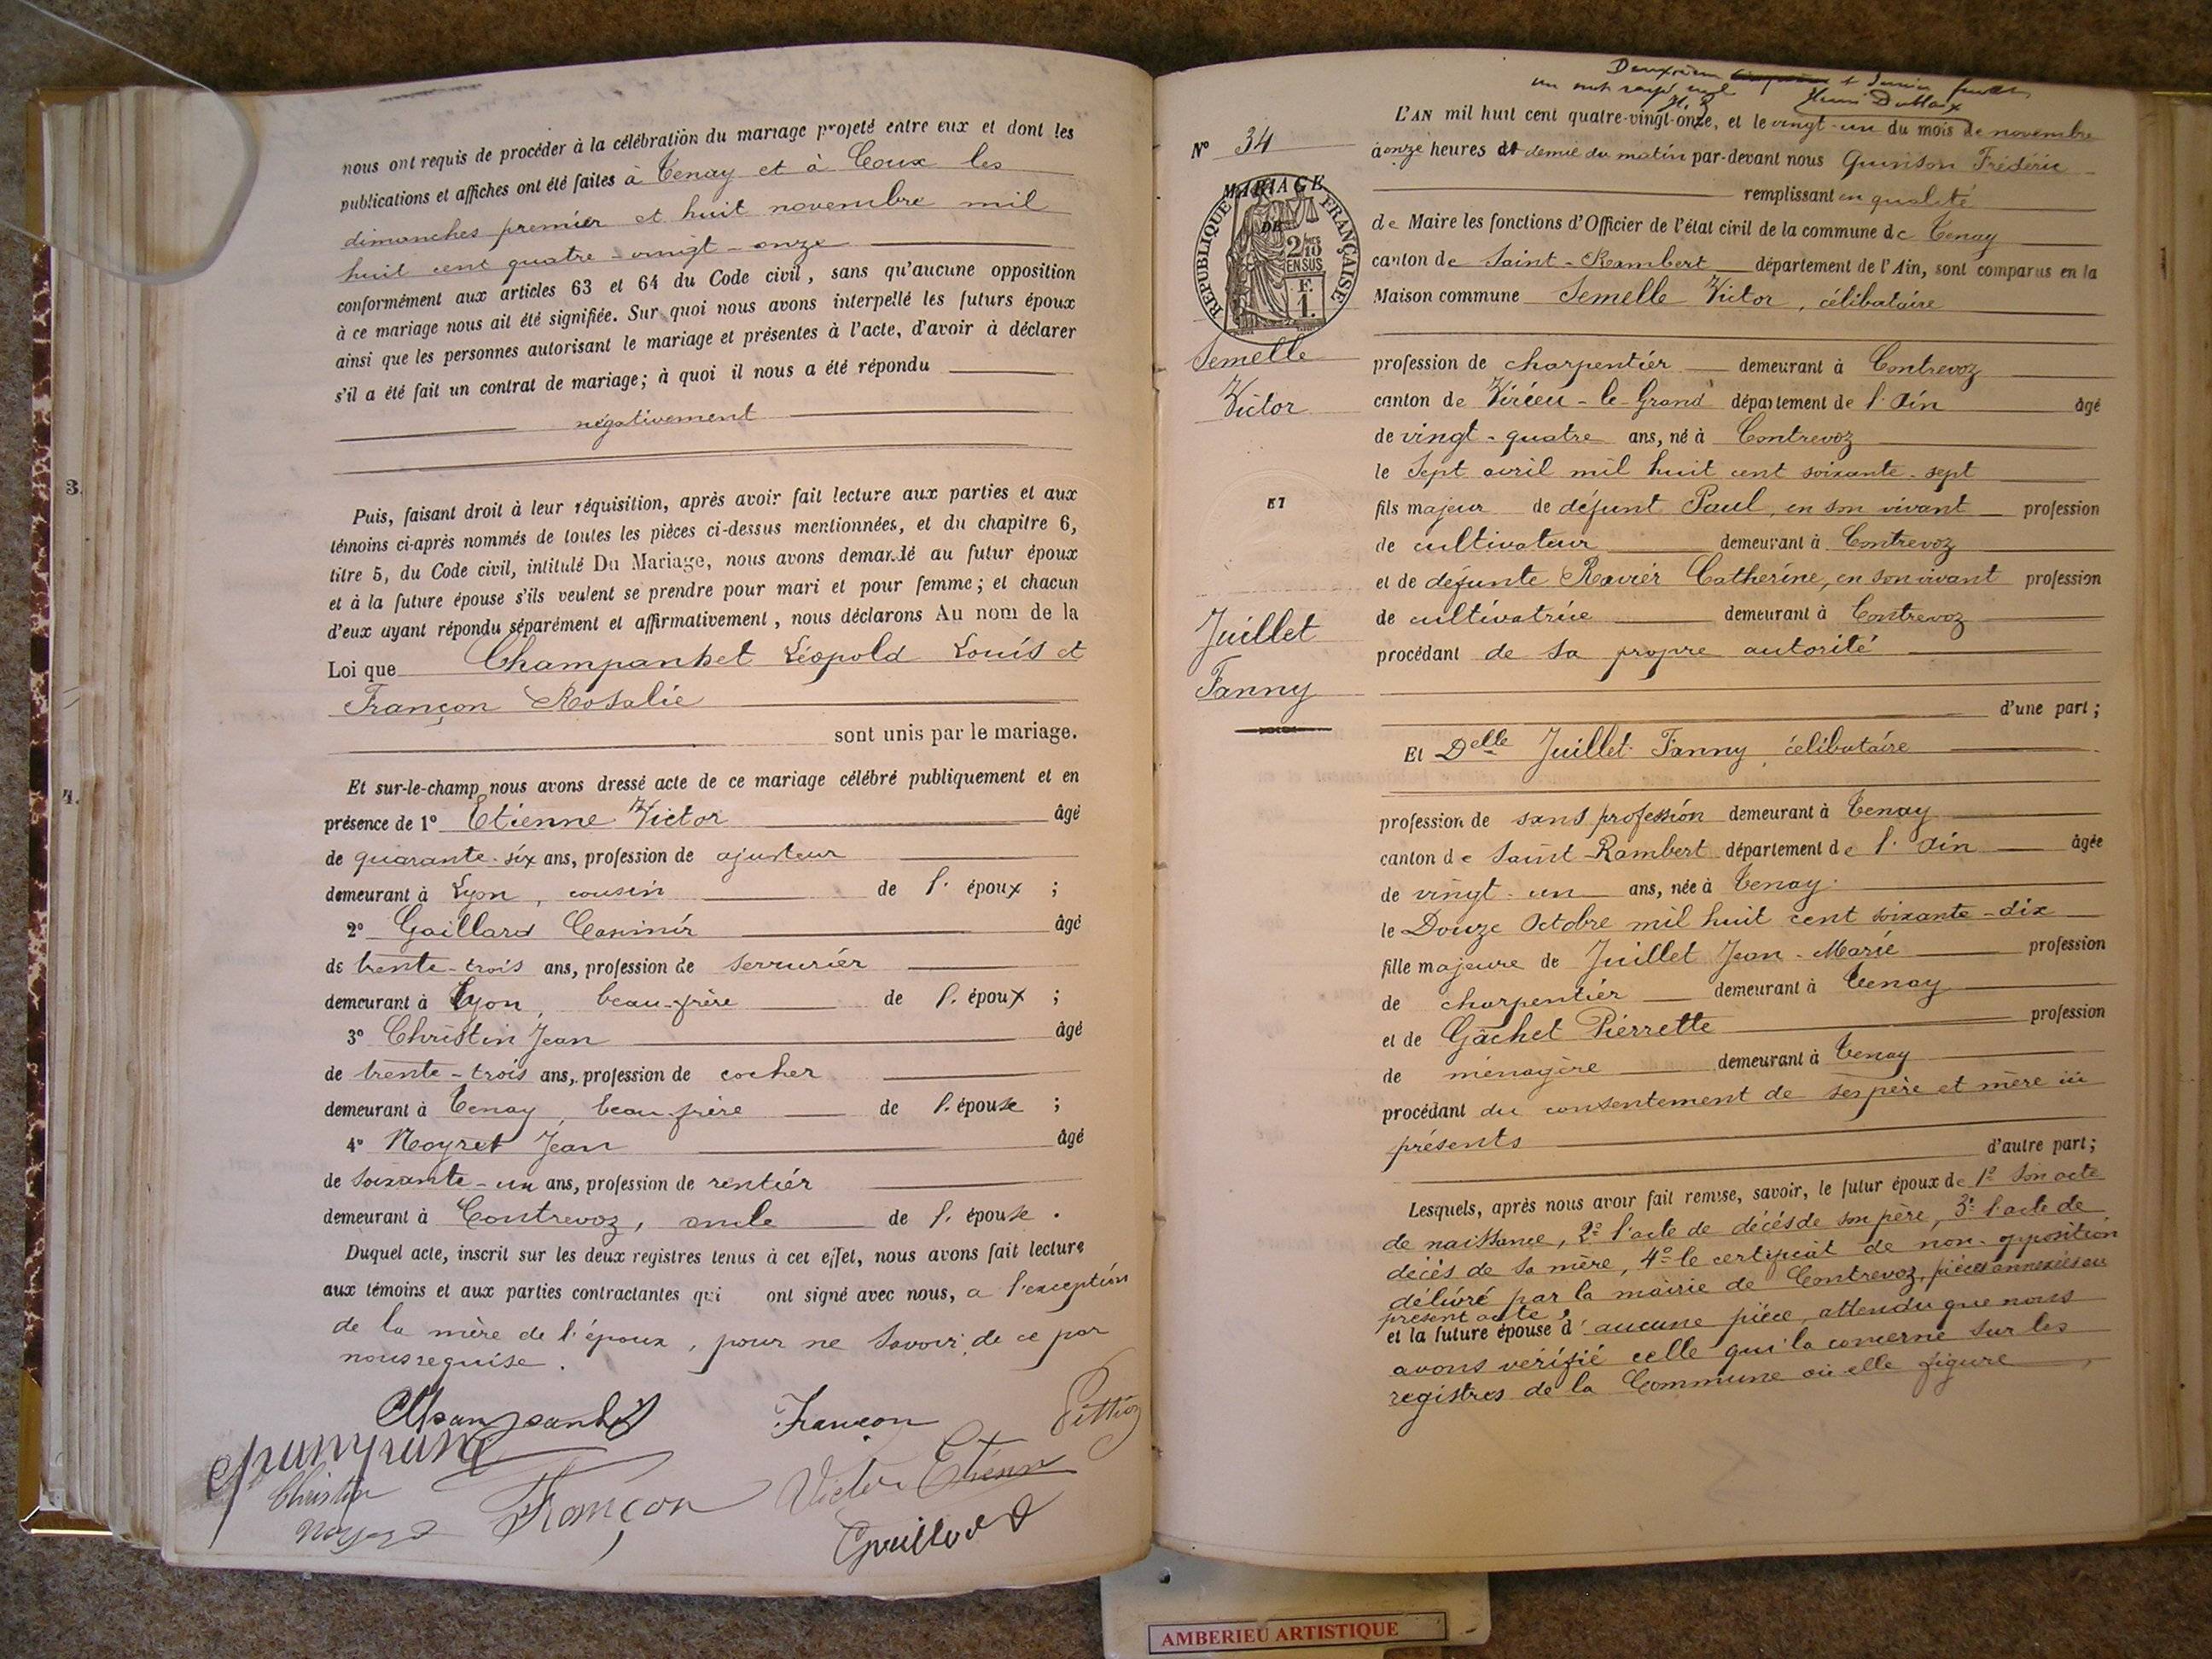 nous ont requis de procéder à la célébration du mariage projeté entre eux et dont les
publications et affiches ont été faites à Tenay et à Coux les
dimanches premier et huit novembre mil
huit cent quatre-vingt-onze
conformément aux articles 63 et 64 du Code civil, sans qu'aucune opposition
à ce mariage nous ait été signifiée. Sur quoi nous avons interpellé les futurs époux
ainsi que les personnes autorisant le mariage et présentes à l'acte, d'avoir à déclarer
s'il a été fait un contrat de mariage; à quoi il nous a été répondu
négativement
3.
Puis, faisant droit à leur réquisition, après avoir fait lecture aux parties et aux
témoins ci-après nommés de toutes les pièces ci-dessus mentionnées, et du chapitre 6,
titre 5, du Code civil, intitulé Du Mariage, nous avons demandé au futur époux
et à la future épouse s'ils veulent se prendre pour mari et pour femme; et chacun
d'eux ayant répondu séparément et affirmativement, nous déclarons Au nom de la
Loi que Champanhet Léopold Louis et
Françon Rosalie
sont unis par le mariage.
4.
Et sur-le-champ nous avons dressé acte de ce mariage célébré publiquement et en
présence de 1° Etienne Victor âgé
de quarante-six ans, profession de ajusteur
demeurant à Lyon, cousin de l'époux ;
2° Gaillard Casimir âgé
de trente-trois ans, profession de serrurier
demeurant à Lyon, beau-frère de l'époux ;
3° Christin Jean âgé
de trente-trois ans, profession de cocher
demeurant à Tenay, beau-frère de l'épouse ;
4° Noyret Jean âgé
de soixante-un ans, profession de rentier
demeurant à Contrevoz, oncle de l'épouse.
Duquel acte, inscrit sur les deux registres tenus à cet effet, nous avons fait lecture
aux témoins et aux parties contractantes qui ont signé avec nous, a l'exception
de la mère de l'époux, pour ne savoir, de ce par
nous requise.
Françon
Christin
Françon
Victor Etienne
Deuxième
Henri Dublaix
N° 34
MARIAGE
RÉPUBLIQUE FRANÇAISE
DE
2/10 MES
EN SUS
F.
1.
Semelle
Victor
ET
Juillet
Fanny
L'AN mil huit cent quatre-vingt-onze, et le vingt-un du mois de novembre
à onze heures et demie du matin par-devant nous Quinson Frédéric
remplissant en qualité
de Maire les fonctions d'Officier de l'état civil de la commune de Tenay
canton de Saint-Rambert département de l'Ain, sont comparus en la
Maison commune Semelle Victor, célibataire
profession de charpentier demeurant à Contrevoz
canton de Virieu-le-Grand département de l'Ain âgé
de vingt-quatre ans, né à Contrevoz
le Sept avril mil huit cent soixante-sept
fils majeur de défunt Paul, en son vivant profession
de cultivateur demeurant à Contrevoz
et de défunte Ravier Catherine, en son vivant profession
de cultivatrice demeurant à Contrevoz
procédant de sa propre autorité
d'une part;
Et Delle Juillet Fanny, célibataire
profession de sans profession demeurant à Tenay
canton de Saint-Rambert département de l'Ain âgée
de vingt-un ans, née à Tenay
le Douze Octobre mil huit cent soixante-dix
fille majeure de Juillet Jean-Marie profession
de charpentier demeurant à Tenay
et de Gâchet Pierrette profession
de ménagère demeurant à Tenay
procédant du consentement de ses père et mère ici
présents
d'autre part;
Lesquels, après nous avoir fait remise, savoir, le futur époux de 1° son acte
de naissance, 2° l'acte de décès de son père, 3° l'acte de
décès de sa mère, 4° le certificat de non-opposition
délivré par la mairie de Contrevoz, pièces annexées au
présent acte,
et la future épouse d'aucune pièce, attendu que nous
avons vérifié celle qui la concerne sur les
registres de la Commune où elle figure
AMBERIEU ARTISTIQUE